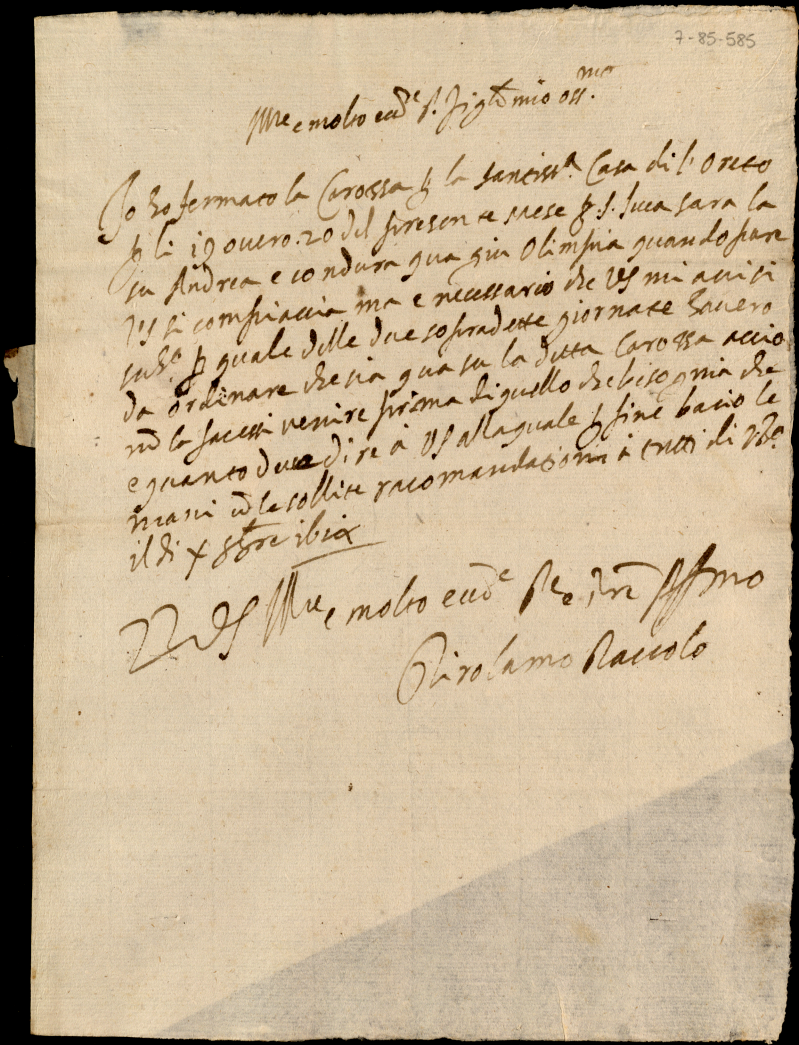 7-85-585
Ill.re e molto ecc.te S. figl.o mio oss.mo
Io ho fermato la Carozza p la santiss.a Casa di l'Oreto
p li 19 overo 20 del presente mese p. S. luca sara la
su Andrea e condura qua giu Olimpia quando pure
VS si compiaccia ma e necessario che VS mi avisi
sub.o p quale delle due sopradette giornate havero
da ordinare che sia qua su la ditta Carozza accio
nō la facessi venire prima di quello che bisognia che
e quanto devo dire à VS alla quale p fine bacio le
mani cō le sollite racomandationi à tutti di
il di X 8bre
Di VS Ill.re e molto ecc.te
Girolamo